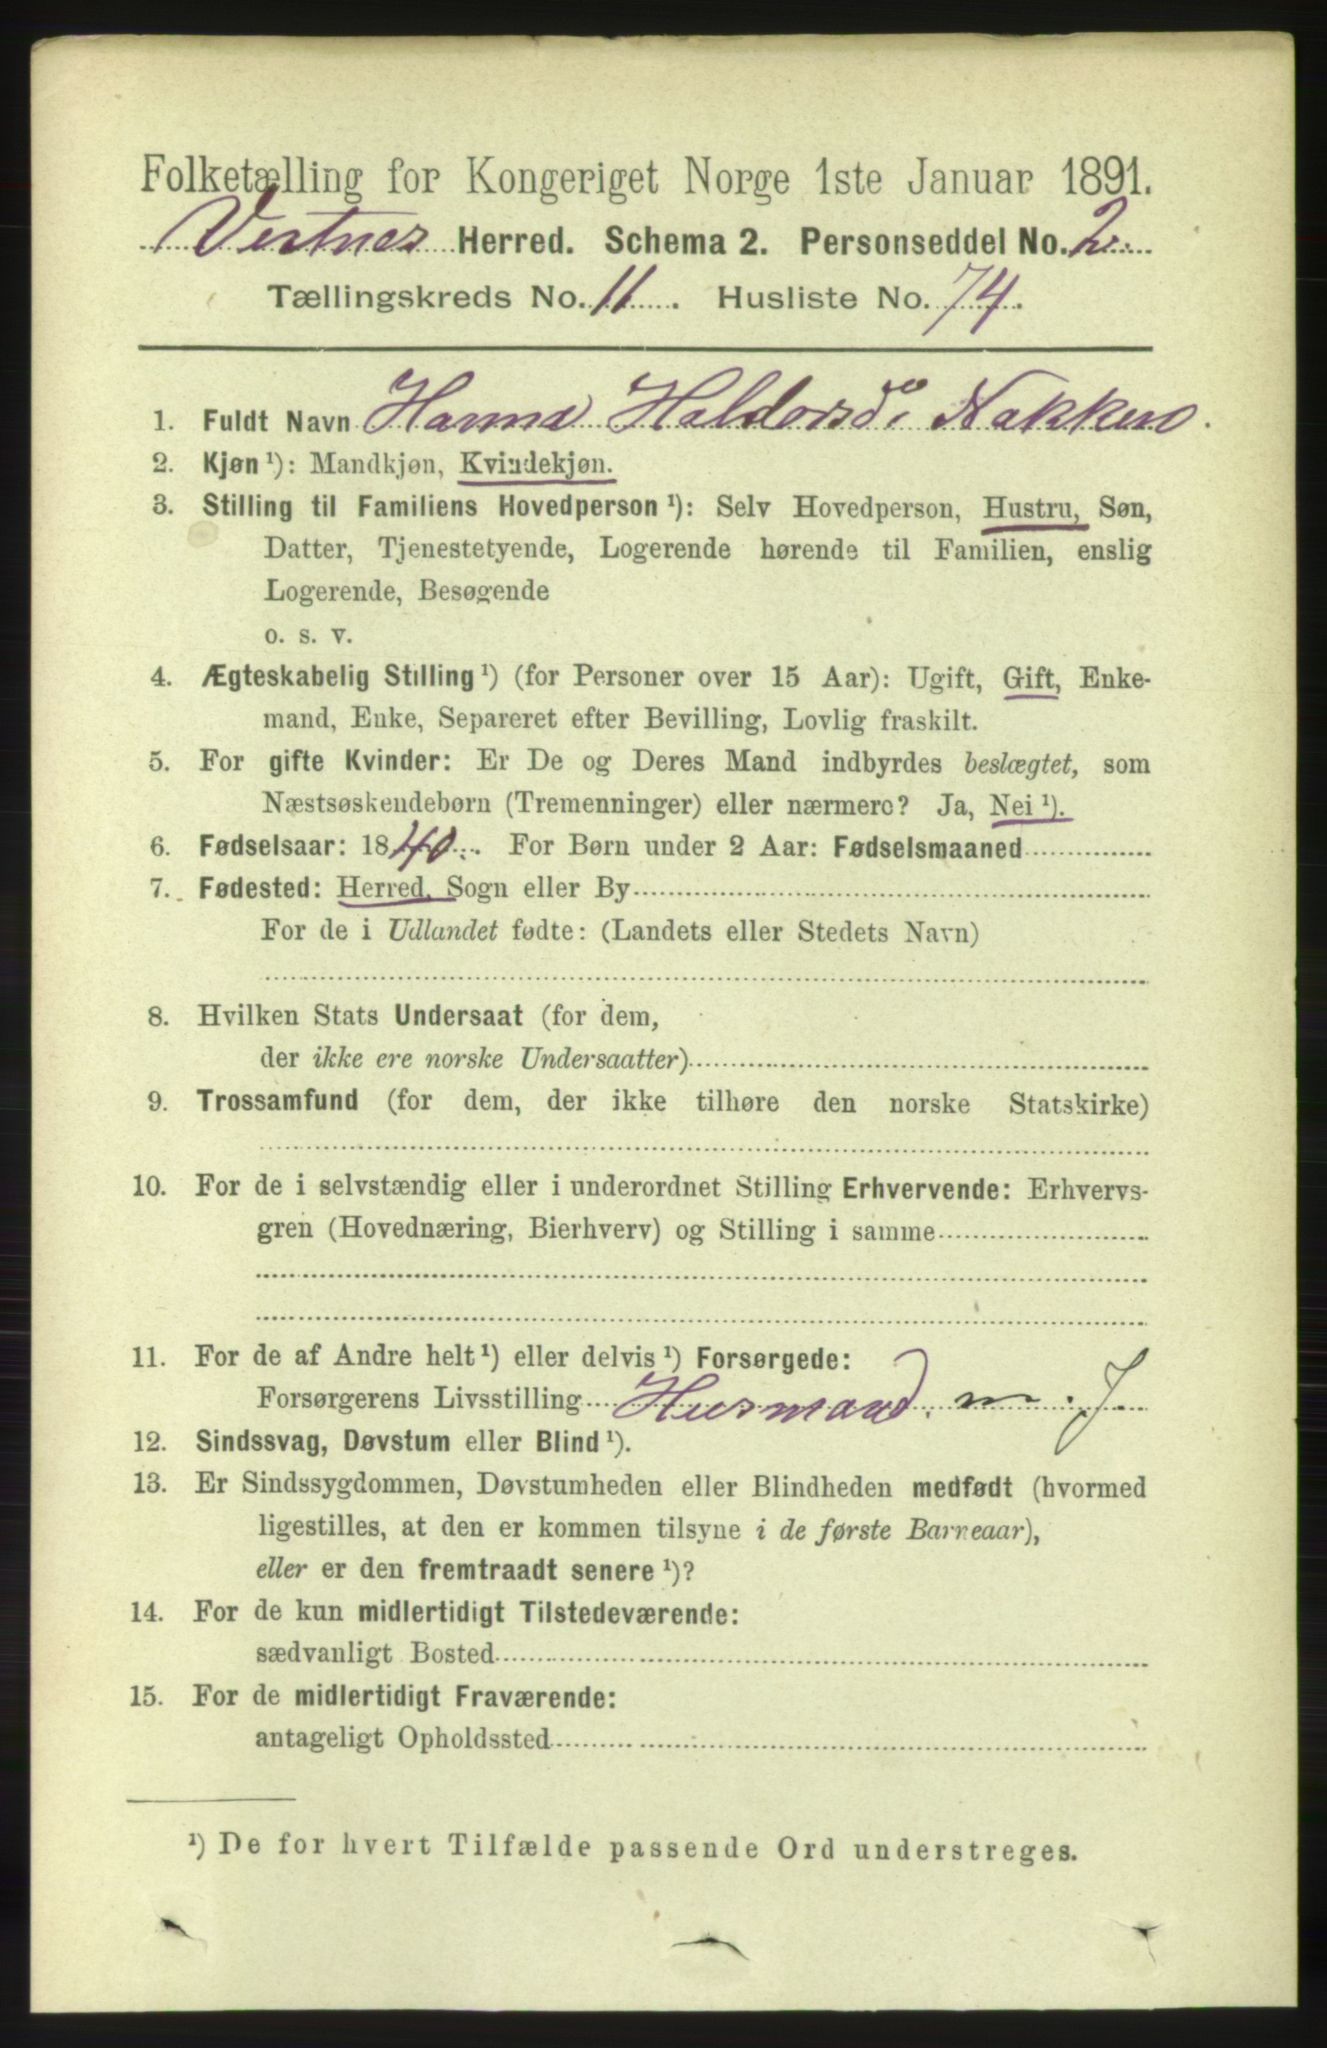 Folketælling for Kongeriget Norge 1ste Januar 1891.
Vestnes Herred. Schema 2. Personseddel No. 2.
Tællingskreds No. 11. Husliste No. 74.
1. Fuldt Navn Hanna Haldorsd. Nakken.
2. Kjøn ¹): Mandkjøn, Kvindekjøn.
3. Stilling til Familiens Hovedperson ¹): Selv Hovedperson, Hustru, Søn,
Datter, Tjenestetyende, Logerende hørende til Familien, enslig
Logerende, Besøgende
o. s. v.
4. Ægteskabelig Stilling ¹) (for Personer over 15 Aar): Ugift, Gift, Enke-
mand, Enke, Separeret efter Bevilling, Lovlig fraskilt.
5. For gifte Kvinder: Er De og Deres Mand indbyrdes beslægtet, som
Næstsøskendebørn (Tremenninger) eller nærmere? Ja, Nei ¹).
6. Fødselsaar: 1840. For Børn under 2 Aar: Fødselsmaaned
7. Fødested: Herred, Sogn eller By
For de i Udlandet fødte: (Landets eller Stedets Navn)
8. Hvilken Stats Undersaat (for dem,
der ikke ere norske Undersaatter)
9. Trossamfund (for dem, der ikke tilhøre den norske Statskirke)
10. For de i selvstændig eller i underordnet Stilling Erhvervende: Erhvervs-
gren (Hovednæring, Bierhverv) og Stilling i samme
11. For de af Andre helt ¹) eller delvis ¹) Forsørgede:
Forsørgerens Livsstilling Husmand m. J.
12. Sindssvag, Døvstum eller Blind ¹).
13. Er Sindssygdommen, Døvstumheden eller Blindheden medfødt (hvormed
ligestilles, at den er kommen tilsyne i de første Barneaar),
eller er den fremtraadt senere ¹)?
14. For de kun midlertidigt Tilstedeværende:
sædvanligt Bosted
15. For de midlertidigt Fraværende:
antageligt Opholdssted
¹) De for hvert Tilfælde passende Ord understreges.